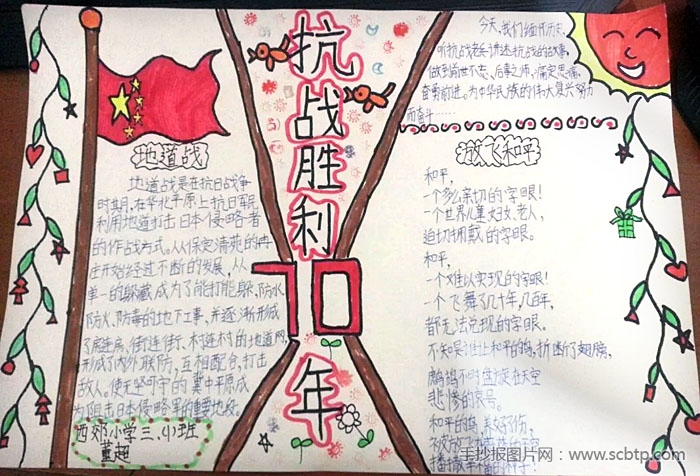 抗战胜利70年
地道战
地道战是在抗日战争
时期,在华北平原上抗日军民
利用地道打击日本侵略者
的作战方式。从保定清苑的冉
庄开始经过不断的发展,从
单一的躲藏成为了能打能躲、防水
防火、防毒的地下工事,并逐渐形成
了房连房、街连街、村连村的地道网,
形成了内外联防,互相配合,打击
敌人。使无坚可守的冀中平原成
为阻击日本侵略军的重要地段。
西郊小学三、(1)班
董超
今天,我们缅怀历史,
听抗战老兵讲述抗战的故事,
做到前世不忘、后事之师,痛定思痛,
奋勇前进。为中华民族的伟大复兴努力
而奋斗……
和平
和平,
一个多么亲切的字眼!
一个世界儿童、妇孩、老人,
迫切拥戴的字眼。
和平,
一个难以实现的字眼!
一个飞舞了几十年、几百年,
都无法兑现的字眼。
不知是谁让和平的鸽,折断了翅膀,
鹧鸪不时盘旋在天空
悲惨的哀号。
和平的鸽,养好伤,
手抄报图片网:www.scbtp.com